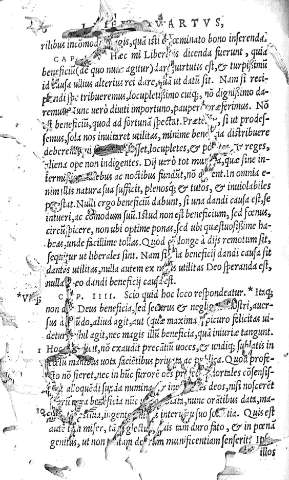 LIBER QVARTVS,
rilibus incommodi magis, quã isti ę nominato bono inferenda.
CAP. Hæc mi Liberalis dicenda fuerunt, quia
beneficiũ (de quo nunc agitur) dare virtutis est, & turpissimũ
id causa vllius alterius rei dare, quã vt datũ sit. Nam si reci-
piendi spe tribueremus, locupletissimo cuiq;, nõ dignissimo da-
remus: nunc verò diuiti importuno, pauperẽ præferimus. Nõ
est beneficiũ, quod ad fortunã spectat. Præterea, si vt prodes-
semus, sola nos inuitaret vtilitas, minime beneficia distribuere
deberent locupletes, & potentes, & reges,
aliena ope non indigentes. Dij verò tot munera, quæ sine in-
termissione diebus ac noctibus fundũt, nõ darent. In omnia e-
nim illis natura sua sufficit, plenosq; & tutos, & inuiolabiles
præstat. Nulli ergo beneficiũ dabunt, si vna dandi causa est, se
intueri, ac commodum suũ. Istud non est beneficium, sed fœnus,
circũspicere, non vbi optime ponas, sed vbi quæstuosissime ha-
beas, vnde facillime tollas. Quod cũ longe à dijs remotum sit,
sequitur vt liberales sint. Nam si vna beneficij dandi causa sit
dantis vtilitas, nulla autem ex nobis vtilitas Deo speranda est,
nulla dandi beneficij causa est.
CAP. IIII. Scio quid hoc loco respondeatur. * Itaq;
non dat Deus beneficia, sed securus & negligens nostri, auer-
sus à mũdo, aliud agit, aut (quæ maxima Epicuro felicitas vi-
detur) nihil agit, nec magis illũ beneficia, quã iniuriæ tangunt.
Hoc qui dicit, nõ exaudit precãtiũ voces, & vndiq; sublatis in
cœlũ manibus vota facientibus priuata ac publica. Quod profe-
cto nõ fieret, nec in hũc furorẽ omnes mortales cõsensis-
sent alloquẽdi surda numina & inefficaces deos, nisi nossent
illorũ beneficia nũc nunc orationibus data, ma-
gna, ingentes minas interuentu suo soluentia. Quis est
autẽ tã miser, tã neglectus, quis tam duro fato, & in pœnã
genitus, vt non tantam deorum munificentiam senserit? Ipsos
illos